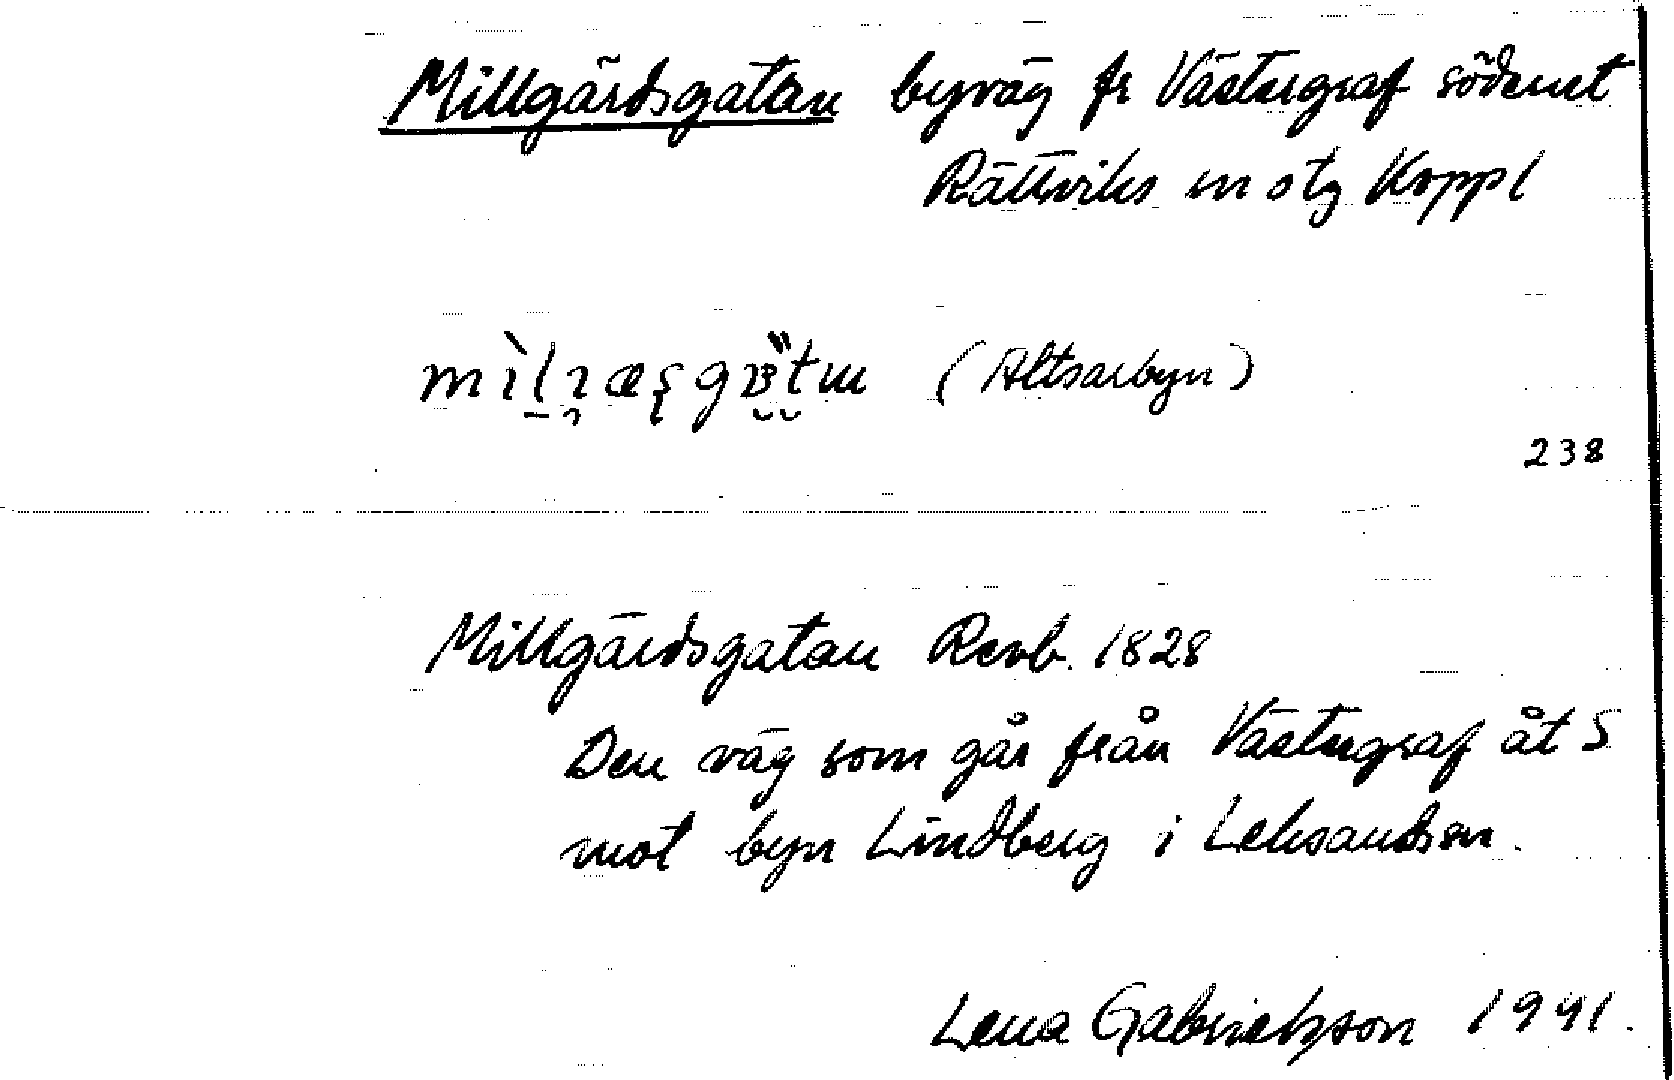 Millgärdsgatan byväg fr Västergraf söderut
Rättviks sn o tg Koppl
(Altsarbyn)
238
Millgärdsgatan Revb. 1828
Den väg som går från Västergraf åt S
mot byn Lindberg i Leksandssn.
Lena Gabrielsson 1941.